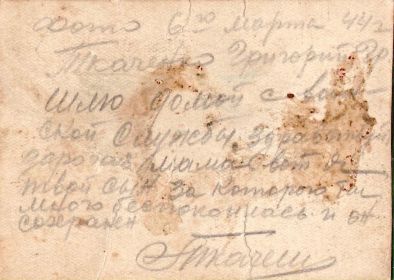 Фото 6го марта 44г
Ткаченко Григорий Гр
Шлю домой с воин
ской службы. Здравствуй
дорогая мама вот я
твой сын за которого ти
много беспокоилась и он
сохранен
Ткачен